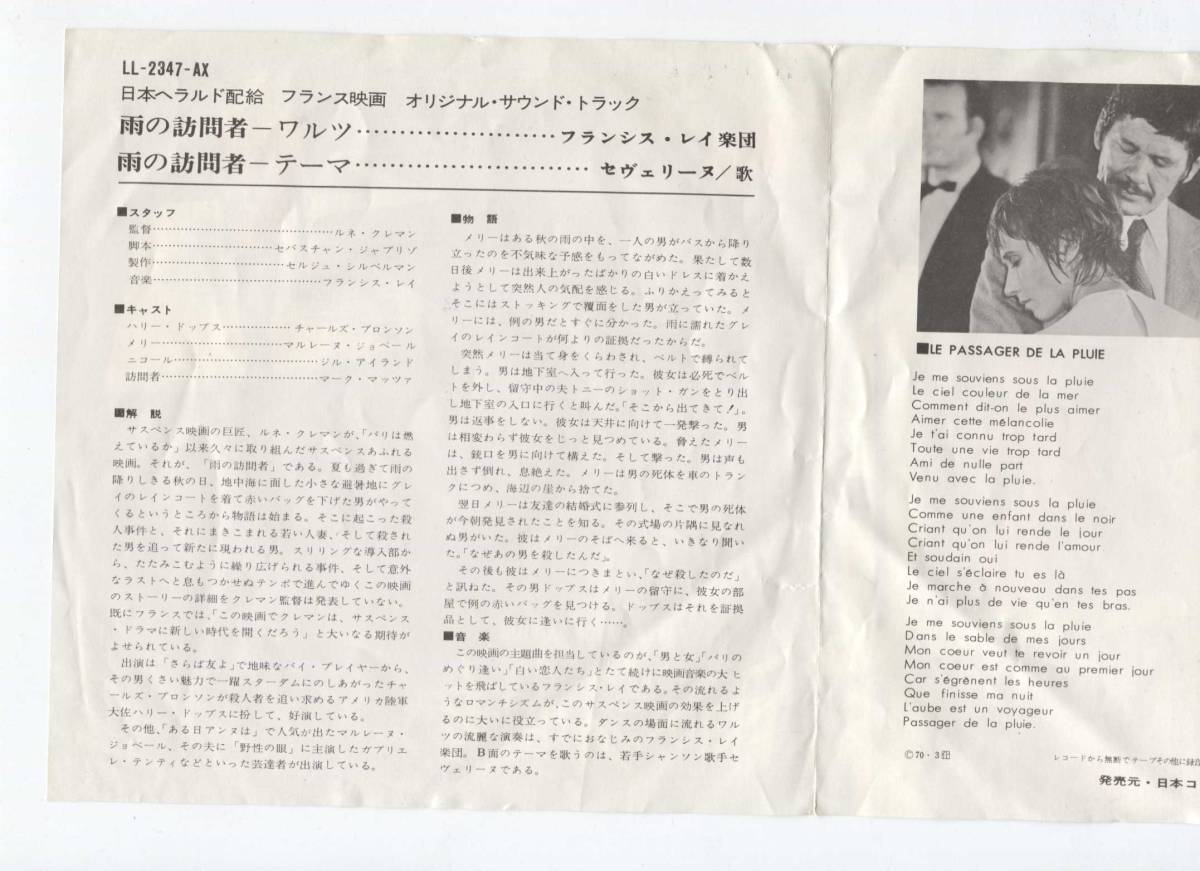 LL-2347-AX
日本ヘラルド配給 フランス映画 オリジナル・サウンド・トラック
雨の訪問者－ワルツ……………………フランシス・レイ楽団
雨の訪問者－テーマ………………………セヴェリーヌ／歌
■スタッフ
監督……………………………………ルネ・クレマン
脚本………………………セバスチャン・ジャプリゾ
製作…………………………セルジュ・シルベルマン
音楽…………………………………フランシス・レイ
■キャスト
ハリー・ドップス………………チャールズ・ブロンソン
メリー…………………………マルレーヌ・ジョベール
ニコール…………………………ジル・アイランド
訪問者……………………………マーク・マッツァ
■解 説
サスペンス映画の巨匠、ルネ・クレマンが、「パリは燃
えているか」以来久々に取り組んだサスペンスあふれる
映画。それが、「雨の訪問者」である。夏も過ぎて雨の
降りしきる秋の日、地中海に面した小さな避暑地にグレ
イのレインコートを着て赤いバッグを下げた男がやって
くるというところから物語は始まる。そこに起こった殺
人事件と、それにまきこまれる若い人妻、そして殺され
た男を追って新たに現われる男。スリリングな導入部か
ら、たたみこむように繰り広げられる事件、そして意外
なラストへと息もつかせぬテンポで進んでゆくこの映画
のストーリーの詳細をクレマン監督は発表していない。
既にフランスでは、「この映画でクレマンは、サスペンス
・ドラマに新しい時代を開くだろう」と大いなる期待が
よせられている。
出演は「さらば友よ」で地味なバイ・プレイヤーから、
その男くさい魅力で一躍スターダムにのしあがったチャ
ールズ・ブロンソンが殺人者を追い求めるアメリカ陸軍
大佐ハリー・ドップスに扮して、好演している。
その他、「ある日アンヌは」で人気が出たマルレーヌ・
ジョベール、その夫に「野性の眼」に主演したガブリエ
レ・テンティなどといった芸達者が出演している。
■物 語
メリーはある秋の雨の中を、一人の男がバスから降り
立ったのを不気味な予感をもってながめた。果たして数
日後メリーは出来上がったばかりの白いドレスに着かえ
ようとして突然人の気配を感じる。ふりかえってみると
そこにはストッキングで覆面をした男が立っていた。メ
リーには、例の男だとすぐに分かった。雨に濡れたグレ
イのレインコートが何よりの証拠だったからだ。
突然メリーは当て身をくらわされ、ベルトで縛られて
しまう。男は地下室へ入って行った。彼女は必死でベル
トを外し、留守中の夫トニーのショット・ガンをとり出
し地下室の入口に行くと叫んだ。「そこから出てきて！」。
男は返事をしない。彼女は天井に向けて一発撃った。男
は相変わらず彼女をじっと見つめている。脅えたメリー
は、銃口を男に向けて構えた。そして撃った。男は声も
出さず倒れ、息絶えた。メリーは男の死体を車のトラン
クにつめ、海辺の崖から捨てた。
翌日メリーは友達の結婚式に参列し、そこで男の死体
が今朝発見されたことを知る。その式場の片隅に見なれ
ぬ男がいた。彼はメリーのそばへ来ると、いきなり聞い
た。「なぜあの男を殺したんだ」。
その後も彼はメリーにつきまとい、「なぜ殺したのだ」
と訊ねた。その男ドップスはメリーの留守に、彼女の部
屋で例の赤いバッグを見つける。ドップスはそれを証拠
品として、彼女に逢いに行く……。
■音 楽
この映画の主題曲を担当しているのが、「男と女」「パリの
めぐり逢い」「白い恋人たち」とたて続けに映画音楽の大ヒ
ットを飛ばしているフランシス・レイである。その流れるよ
うなロマンチシズムが、このサスペンス映画の効果を上げ
るのに大いに役立っている。ダンスの場面に流れるワル
ツの流麗な演奏は、すでにおなじみのフランシス・レイ
楽団。B面のテーマを歌うのは、若手シャンソン歌手セ
ヴェリーヌである。
■LE PASSAGER DE LA PLUIE
Je me souviens sous la pluie
Le ciel couleur de la mer
Comment dit-on le plus aimer
Aimer cette mélancolie
Je t'ai connu trop tard
Toute une vie trop tard
Ami de nulle part
Venu avec la pluie.
Je me souviens sous la pluie
Comme une enfant dans le noir
Criant qu'on lui rende le jour
Criant qu'on lui rende l'amour
Et soudain oui
Le ciel s'éclaire tu es là
Je marche à nouveau dans tes pas
Je n'ai plus de vie qu'en tes bras.
Je me souviens sous la pluie
Dans le sable de mes jours
Mon coeur veut te revoir un jour
Mon coeur est comme au premier jour
Car s'égrènent les heures
Que finisse ma nuit
L'aube est un voyageur
Passager de la pluie.
Ⓒ70・3
レコードから無断でテープその他に録音
発売元・日本コ